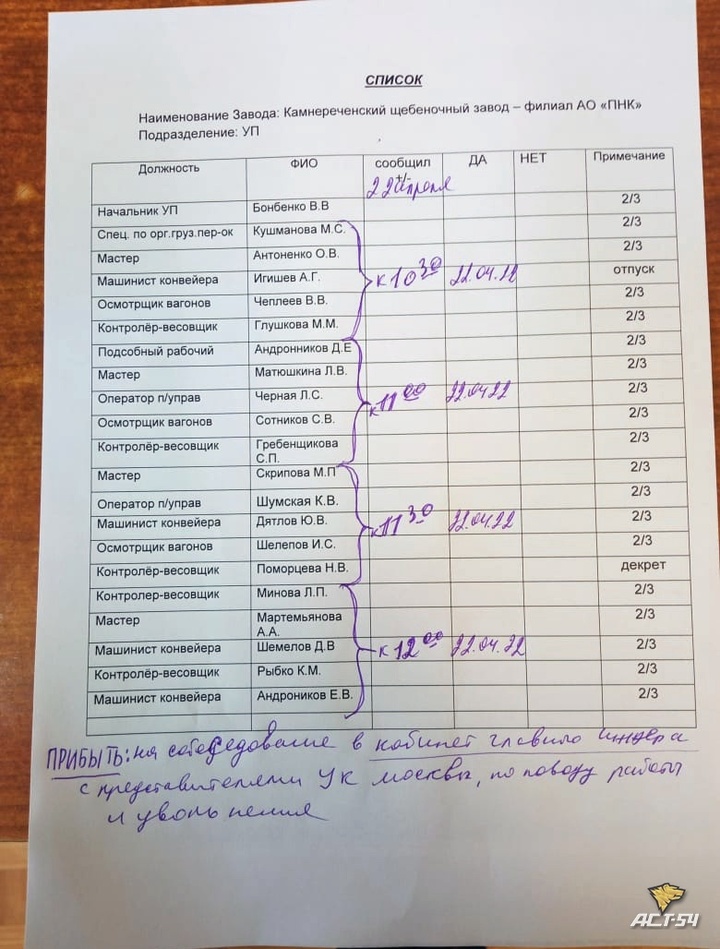 СПИСОК
Наименование Завода: Камнереченский щебеночный завод – филиал АО «ПНК»
Подразделение: УП
Должность ФИО сообщил +/- ДА НЕТ Примечание
22 апреля
Начальник УП Бонбенко В.В 2/3
Спец. по орг.груз.пер-ок Кушманова М.С. 2/3
Мастер Антоненко О.В. 2/3
Машинист конвейера Игишев А.Г. к 10 30 22.04.22 отпуск
Осмотрщик вагонов Чеплеев В.В. 2/3
Контролёр-весовщик Глушкова М.М. 2/3
Подсобный рабочий Андронников Д.Е 2/3
Мастер Матюшкина Л.В. 2/3
Оператор п/управ Черная Л.С. к 11 00 22.04.22 2/3
Осмотрщик вагонов Сотников С.В. 2/3
Контролёр-весовщик Гребенщикова С.П. 2/3
Мастер Скрипова М.П 2/3
Оператор п/управ Шумская К.В. 2/3
Машинист конвейера Дятлов Ю.В. к 11 30 22.04.22 2/3
Осмотрщик вагонов Шелепов И.С. 2/3
Контролёр-весовщик Поморцева Н.В. декрет
Контролер-весовщик Минова Л.П. 2/3
Мастер Мартемьянова А.А. 2/3
Машинист конвейера Шемелов Д.В к 12 00 22.04.22 2/3
Контролёр-весовщик Рыбко К.М. 2/3
Машинист конвейера Андроников Е.В. 2/3
ПРИБЫТЬ: на собеседование в кабинет главного
с представителями УК москвы, по поводу работы
и увольнения
АСТ-54